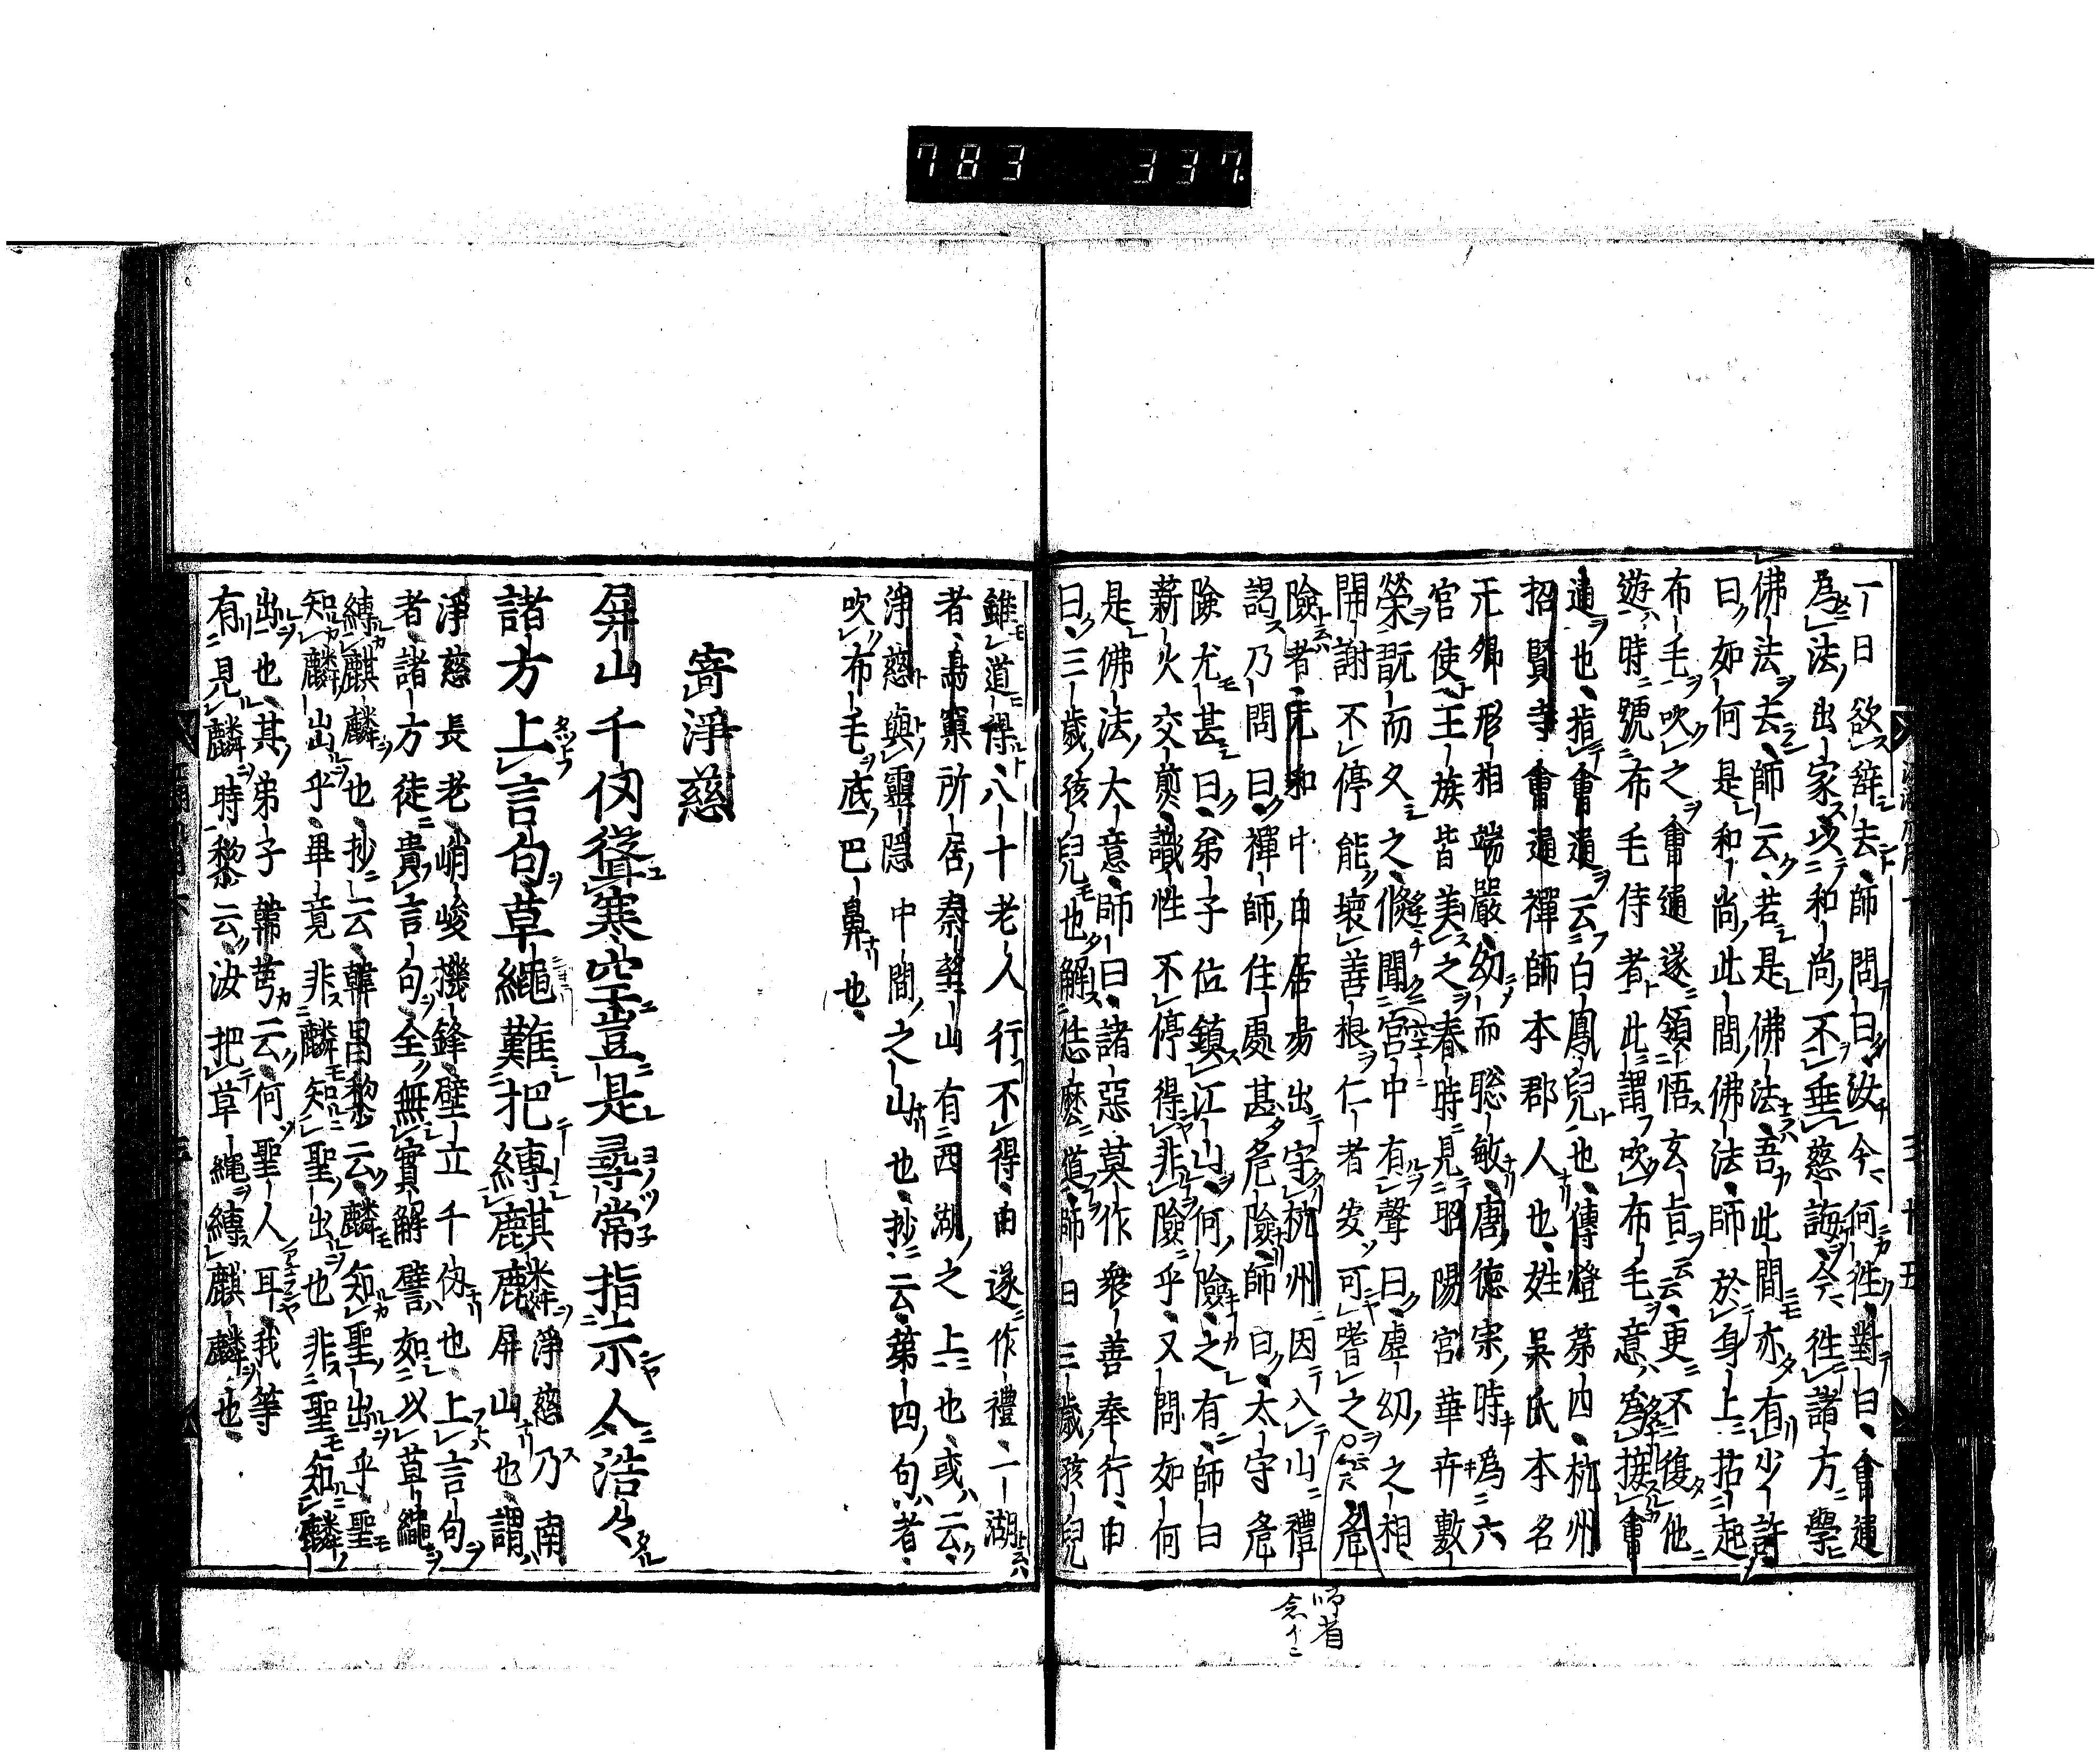 783 337
一日欲辭去師問曰汝今何徃對曰會通
為法出家以和尚不垂慈誨今徃諸方學
佛法去師云若是佛法吾此間亦有少許
曰如何是和尚此間佛法師於身上拈起
布毛吹之會通遂領悟玄旨云更不復他
遊時號布毛侍者此謂吹布毛意為接會
通也指會通云白鳳兒也傳燈第四杭州
招賢寺會通禪師本郡人也姓吳氏本名
元卿形相端嚴幼而聡敏唐德宗時為六
宮使王族皆美之春時見昭陽宮華卉敷
榮翫而久之倐聞宮中有聲曰虛幻之相
開謝不停能壞善根仁者安可嗜之
險者元和中白居易出守杭州因入山禮
謁乃問曰禪師住處甚危險師曰太守危
險尤甚曰弟子位鎮江山何險之有師曰
薪火交煎識性不停得非險乎又問如何
是佛法大意師曰諸惡莫作衆善奉行白
曰三歲孩兒也解恁麼道師曰三歲孩兒
雖道得八十老人行不得白遂作禮二湖
者鳥窠所居秦望山有西湖之上也或云
淨慈與靈隱中間之山也抄云第四句者
吹布毛底巴鼻也
寄淨慈
屏山千仞聳寒空豈是尋常指示人浩々
諸方上言句草繩難把縛麒麟
淨慈乃南
屏山也謂
淨慈長老峭峻機鋒壁立千仞也上言句
者諸方徒貴言句全無實解譬如以草繩
縛麒麟也抄云韓昌黎云麟知聖出乎聖
知麟出乎畢竟非麟知聖出也非聖知麟
出也其弟子韓蕚云何聖人耳我等
有見麟時黎云汝把草繩縛麒麟也
師省
念